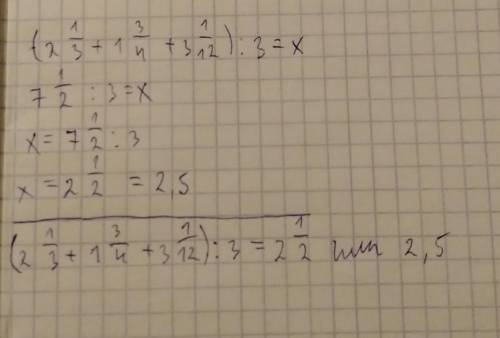 (2 1/3 + 1 3/4 + 3 1/12) : 3 = x
7 1/2 : 3 = x
x = 7 1/2 : 3
x = 2 1/2 = 2,5
(2 1/3 + 1 3/4 + 3 1/12) : 3 = 2 1/2 или 2,5